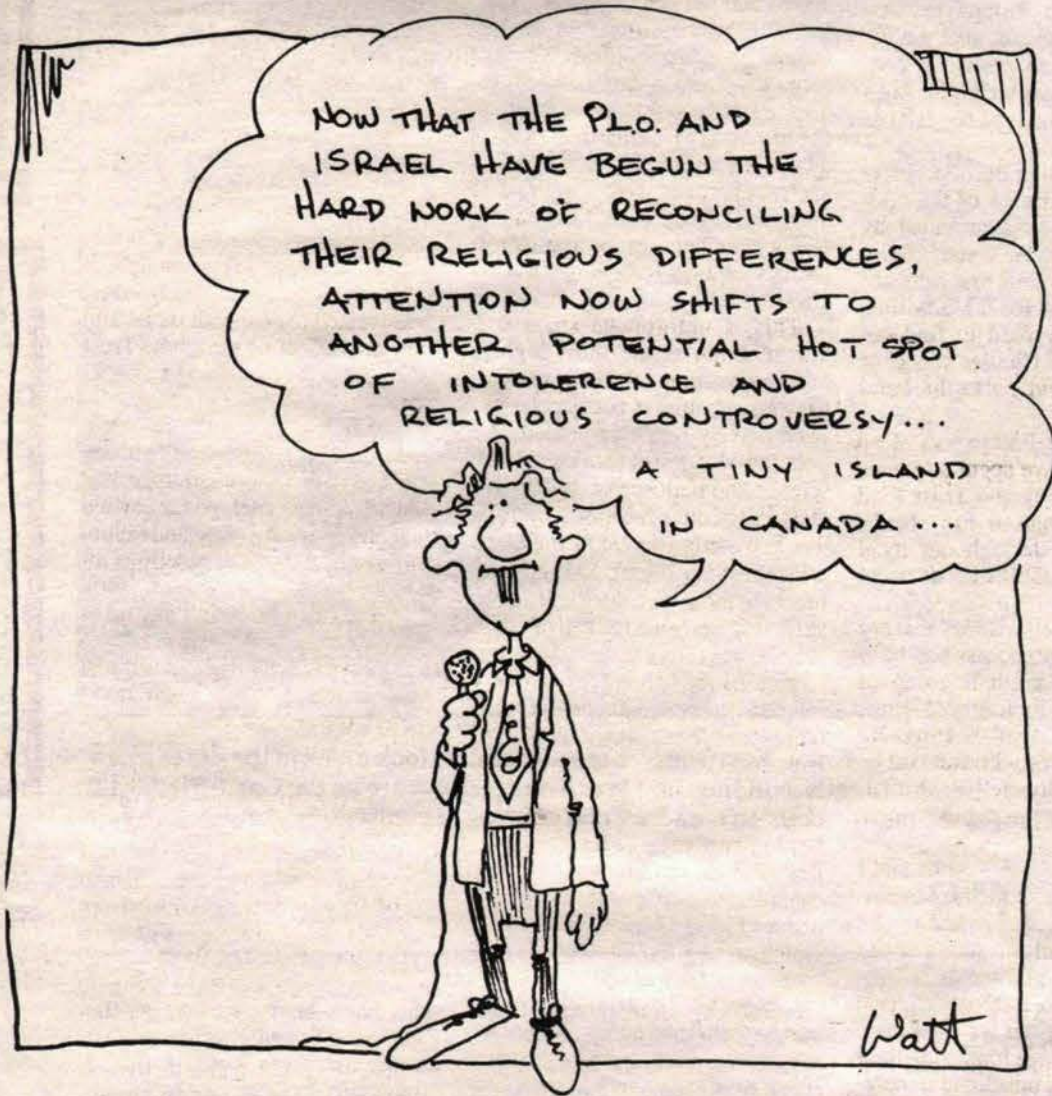 NOW THAT THE P.L.O. AND
ISRAEL HAVE BEGUN THE
HARD WORK OF RECONCILING
THEIR RELIGIOUS DIFFERENCES,
ATTENTION NOW SHIFTS TO
ANOTHER POTENTIAL HOT SPOT
OF INTOLERENCE AND
RELIGIOUS CONTROVERSY...
A TINY ISLAND
IN CANADA...
Watt